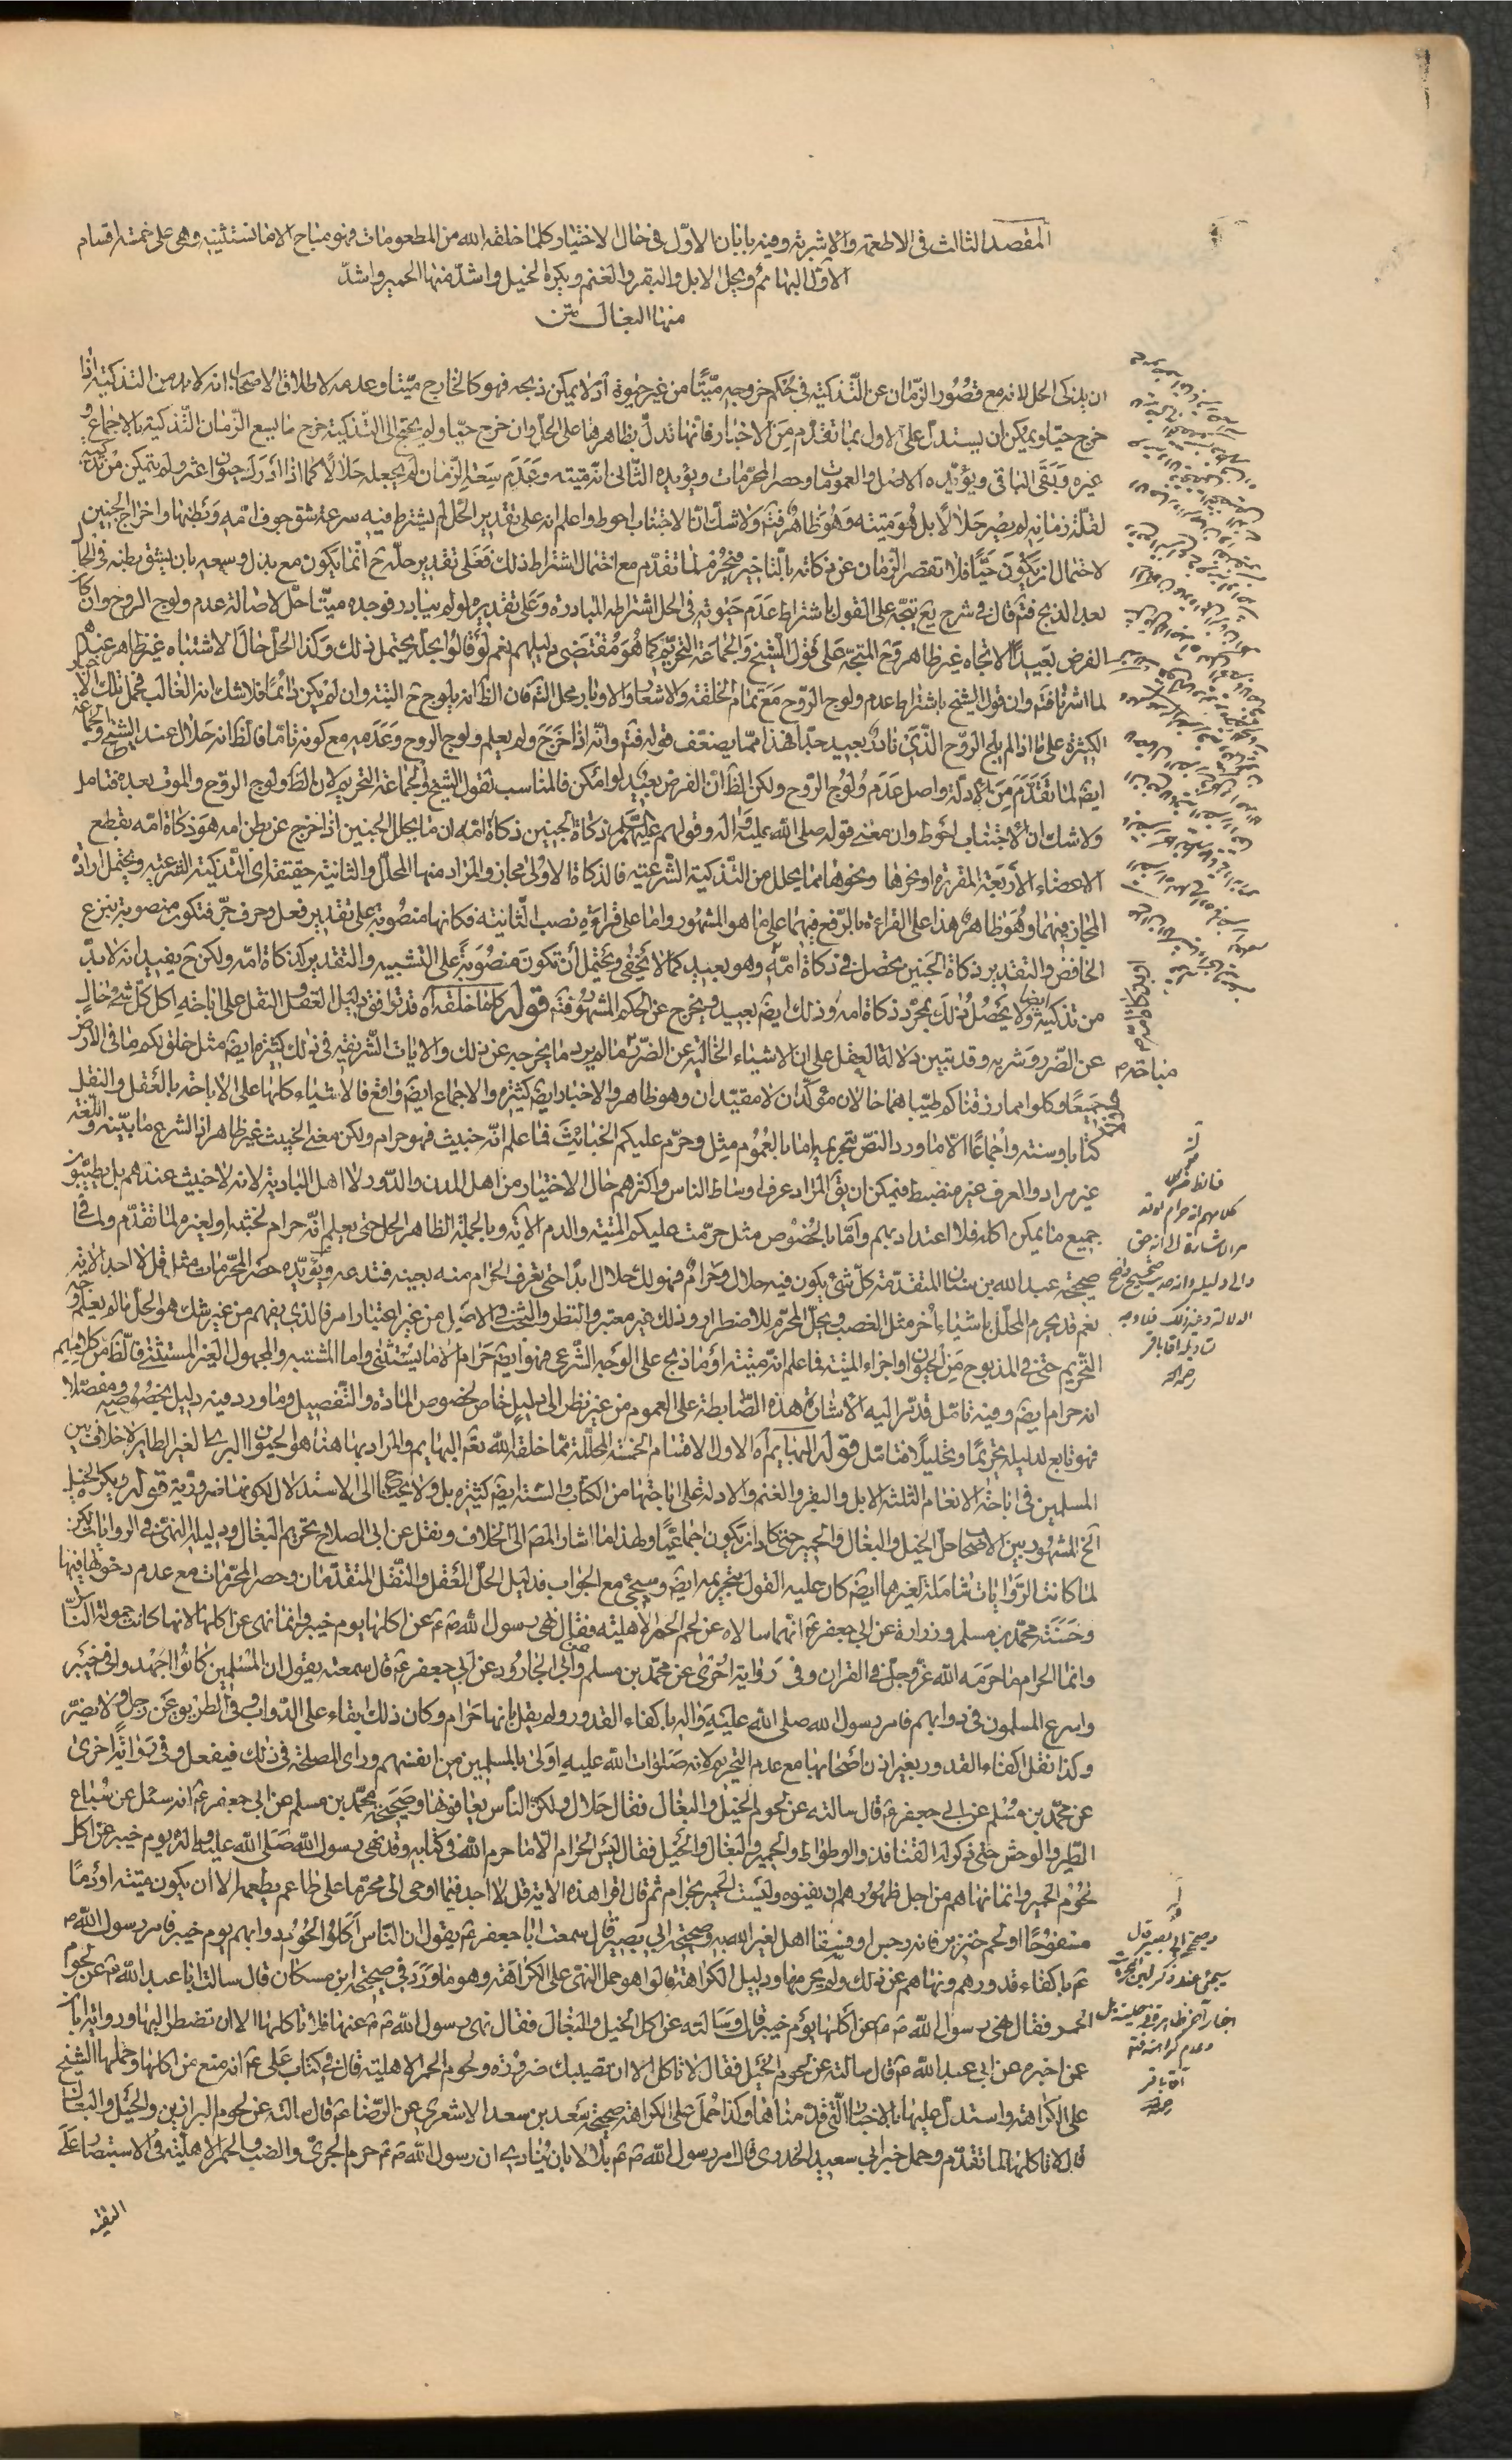 المقصد الثالث في الاطعمة والاشربة وفيه بابان الاول في حال الاختيار وكلما خلقه الله من المطعومات فهو مباح الا ما نستثنيه وهي على خمسة اقسام
الاول البهائم ويحل الابل والبقر والغنم ويكره الخيل واشد منها الحمير واشد
منها البغال متن
ان يذكى الحل لانه مع قصور الزمان عن التذكية في حكم خروجه ميتا من غير حيوة اذ لا يمكن ذبحه فهو كالخارج ميتا وعدمه لاطلاق الاصحاب انه لا بد من التذكية اذا
خرج حيا ويمكن ان يستدل على الاول بما تقدم من الاخبار فانها تدل بظاهرها على الحل وان خرج حيا ولم يحتج الى التذكية خرج ما يسع الزمان التذكية بالاجماع و
غيره وبقى الباقي ويؤيده الاصل والعمومات وحصر المحرمات ويؤيده الثاني انه ميتة وعدم سعة الزمان لم يجعله حلالا كما اذا ادرك حيوانا غيره ولم يتمكن من تذكيته
لقلة زمانه لم يصر حلالا بل هو ميتة وهو ظاهر فتم ولا شك ان الاجتناب احوط واعلم انه على تقدير الحل لم يشترط فيه سرعة شق جوف امه وبطنها واخراج الجنين
لاحتمال ان يكون حيا فلا تقصر الزمان عن ذكاته بالتاخير فيحرم لما تقدم مع احتمال اشتراط ذلك فعلى تقدير حله ح انما يكون مع بذل وسعه بان يشق بطنه في الحال
بعد الذبح فتم قال في شرح يع يتجه على القول باشتراط عدم حيوته في الحل اشتراط المبادرة وعلى تقديره لو لم يبادر فوجده ميتا حل لاصالة عدم ولوج الروح وان كان
الفرض بعيدا الاتجاه غير ظاهر وح المتجه على قول الشيخ والجماعة التحريم كما هو مقتضى دليلهم نعم لو قالوا بحله يحتمل ذلك وكذا الحل حال الاشتباه غير ظاهر عندهم
لما اشرنا فتم وان قول الشيخ باشتراط عدم ولوج الروح مع تمام الخلقة والاشعار والاوبار محل التم فان الظ انه يلوج ح البتة وان لم يكن دائما فلا شك انه الغالب فحمل تلك الاخبار
الكثيرة على ما اذا لم يلج الروح الذي نادر بعيد جدا فهذا مما يضعف قوله فتم وانه اذا خرج ولم يعلم ولوج الروح وعدمه مع كونه تاما فالظ انه حلال عند الشيخ وجماعة
ايضا لما تقدم من الادلة واصل عدم ولوج الروح ولكن الظ ان الفرض بعيد لو امكن فالمناسب لقول الشيخ والجماعة التحريم لان الظ ولوج الروح والموت بعده فتامل
ولا شك ان الاجتناب احوط وان معنى قوله صلى الله عليه واله وقولهم عليهم السلم ذكاة الجنين ذكاة امه ان ما يحل الجنين اذا خرج عن بطن امه هو ذكاة امه بقطع
الاعضاء الاربعة المقررة او نحرها ونحوها مما يحلل من التذكية الشرعية فالذكاة الاولى مجاز والمراد منها المحلل والثانية حقيقة اى التذكية الشرعية ويحتمل ارادة
المجاز فيهما وهو ظاهر هذا على القراءة بالرفع فيهما على ما هو المشهور واما على قراءة نصب الثانية فكانها منصوبة على تقدير فعل وحرف جر فتكون منصوبة بنزع
الخافض والتقدير ذكاة الجنين يحصل في ذكاة امه وهو بعيد كما لا يخفى ويحتمل ان تكون منصوبة على التشبيه والتقدير كذكاة امه ولكن ح يفيد انه لا بد
من تذكيته ايضا ولا يحصل ذلك بمجرد ذكاة امه وذلك ايضا بعيد ويخرج عن الحكم المشهور فتم قوله كلما خلقه اه قد توافق دليل العقل والنقل على اباحة اكل كل شئ خال
عن الضرر وشربه وقد تبين دلالة العقل على ان الاشياء الخالية عن الضرر ما لم يرد ما يخرجه عن ذلك والايات الشريفة في ذلك كثيرة ايضا مثل خلق لكم ما في الارض
جميعا وكلوا مما رزقناكم طيبا هما حالان مؤكدان لا مقيدان وهو ظاهر والاخبار ايضا كثيرة والاجماع ايضا واقع فالاشياء كلها على الاباحة بالعقل والنقل
كتابا وسنة واجماعا الا ما ورد النص بتحريمه اما بالعموم مثل وحرم عليكم الخبائث فما علم انه خبيث فهو حرام ولكن معنى الخبيث غير ظاهر اذ الشرع ما بينه واللغة
غير مراد والعرف غير منضبط فيمكن ان يق المراد عرف اوساط الناس واكثرهم حال الاختيار من اهل المدن والدور لا اهل البادية لانه لا خبيث عندهم بل يطيبون
جميع ما يمكن اكله فلا اعتداد بهم واما بالخصوص مثل حرمت عليكم الميتة والدم الاية وبالجملة الظاهر الحل حتى يعلم انه حرام لخبثه او لغيره لما تقدم ولما في
صحيحة عبد الله بن سنان المتقدمة كل شئ يكون فيه حلال وحرام فهو لك حلال ابدا حتى تعرف الحرام منه بعينه فتدعه ويؤيده حصر المحرمات مثل قل لا اجد الاية
نعم قد يحرم المحلل باشياء اخر مثل الغصب ويحل المحرم للاضطرار وذلك غير معتبر والنظر والبحث في الاصل من غير اعتبار امر فالذي يفهم من غير شك هو الحل ما لم يعلم وجه
التحريم حتى في المذبوح من الحيوان او اجزاء الميتة فما علم انه ميتة او ما ذبح على الوجه الشرعي فهو ايضا حرام الا ما يستثنى واما المشتبه والمجهول الغير المستثنى فالظ من كلامهم
انه حرام ايضا وفيه تامل قد مر اليه الاشارة هذه الضابطة على العموم من غير نظر الى دليل خاص لخصوص المادة والتفصيل وما ورد فيه دليل بخصوصه ومفصلا
فهو تابع لدليله تحريما وتحليلا فتامل قوله البهايم اه الاول الاقسام الخمسة المحللة مما خلقه الله نعم البهايم والمراد بها هنا هو الحيوان البرى الغير الطاير لا خلاف بين
المسلمين في اباحة الانعام الثلثة الابل والبقر والغنم والادلة على اباحتها من الكتاب والسنة ايضا كثيرة بل ولا يحتاج الى الاستدلال لكونها ضرورية قوله ويكره الخيل
الخ المشهور بين الاصحاب حل الخيل والبغال والحمير حتى كاد ان يكون اجماعيا ولهذا ما اشار المص الى الخلاف ونقل عن ابي الصلاح تحريم البغال ودليله النهي في الروايات لكن
لما كانت الروايات شاملة لغيرها ايضا كان عليه القول بتحريمه ايضا وسيجئ مع الجواب فدليل الحل العقل والنقل المتقدمان وحصر المحرمات مع عدم دخولها فيها
وحسنة محمد بن مسلم وزرارة عن ابي جعفر ع انهما سالاه عن لحم الحمر الاهلية فقال نهى رسول الله ص عن اكلها يوم خيبر وانما نهى عن اكلها لانها كانت حمولة الناس
وانما الحرام ما حرمه الله عز وجل في القران وفى رواية اخرى عن محمد بن مسلم وابي الجارود عن ابي جعفر ع قال سمعته يقول ان المسلمين كانوا اجهدوا في خيبر
واسرع المسلمون في دوابهم فامر رسول الله صلى الله عليه واله باكفاء القدور ولم يقل بانها حرام وكان ذلك ابقاء على الدواب وفي الطريق عن رجل ولا يضر
وكذا نقل اكفاء القدور بغير اذن اصحابها مع عدم التحريم لانه صلوات الله عليه اولى بالمسلمين من انفسهم وراى المصلحة في ذلك فيفعل وفى رواية اخرى
عن محمد بن مسلم عن ابي جعفر ع قال سالته عن لحوم الخيل والبغال فقال حلال ولكن الناس يعافونها وصحيحة محمد بن مسلم عن ابي جعفر ع انه سئل عن سباع
الطير والوحش حتى ذكر له القنافذ والوطواط والحمير والبغال والخيل فقال ليس الحرام الا ما حرم الله في كتابه وقد نهى رسول الله صلى الله عليه واله يوم خيبر عن اكل
لحوم الحمير وانما نهاهم من اجل ظهورهم ان يفنوه وليست الحمير بحرام ثم قال اقرا هذه الاية قل لا اجد فيما اوحى الى محرما على طاعم يطعمه الا ان يكون ميتة او دما
مسفوحا او لحم خنزير فانه رجس او فسقا اهل لغير الله به وصحيحة ابي بصير قال سمعت ابا جعفر ع يقول ان الناس اكلوا لحوم دوابهم يوم خيبر فامر رسول الله ص
باكفاء قدورهم ونهاهم عن ذلك ولم يحرمها ودليل الكراهة قالوا هو حمل النهي على الكراهة وهو ما ورد في صحيحة ابن مسكان قال سالت ابا عبد الله ع عن لحوم
الحمر فقال نهى رسول الله ص عن اكلها يوم خيبر قال وسالته عن اكل الخيل والبغال فقال نهى رسول الله ص عنها فلا تاكلها الا ان تضطر اليها ورواية ابان
عمن اخبره عن ابي عبد الله ع قال سالته عن لحوم الخيل فقال لا تاكل الا ان تصيبك ضرورة ولحوم الحمر الاهلية قال في كتاب على ع انه منع من اكلها وحملها الشيخ
على الكراهة واستدل عليها بالاخبار التي قدمناها وكذا حمل على الكراهة صحيحة سعد بن سعد الاشعري عن الرضا ع قال سالته عن لحوم البراذين والخيل والبغال
قال لا تاكلها لما تقدم وحمل خبر ابي سعيد الخدري قال امر رسول الله ص بلالا بان ينادي ان رسول الله ص حرم الجري والضب والحمر الاهلية في الاستبصار على
التقية